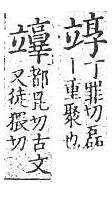 䇏丁罪切磊
丨重聚也
都昆切古文
又徒猥切